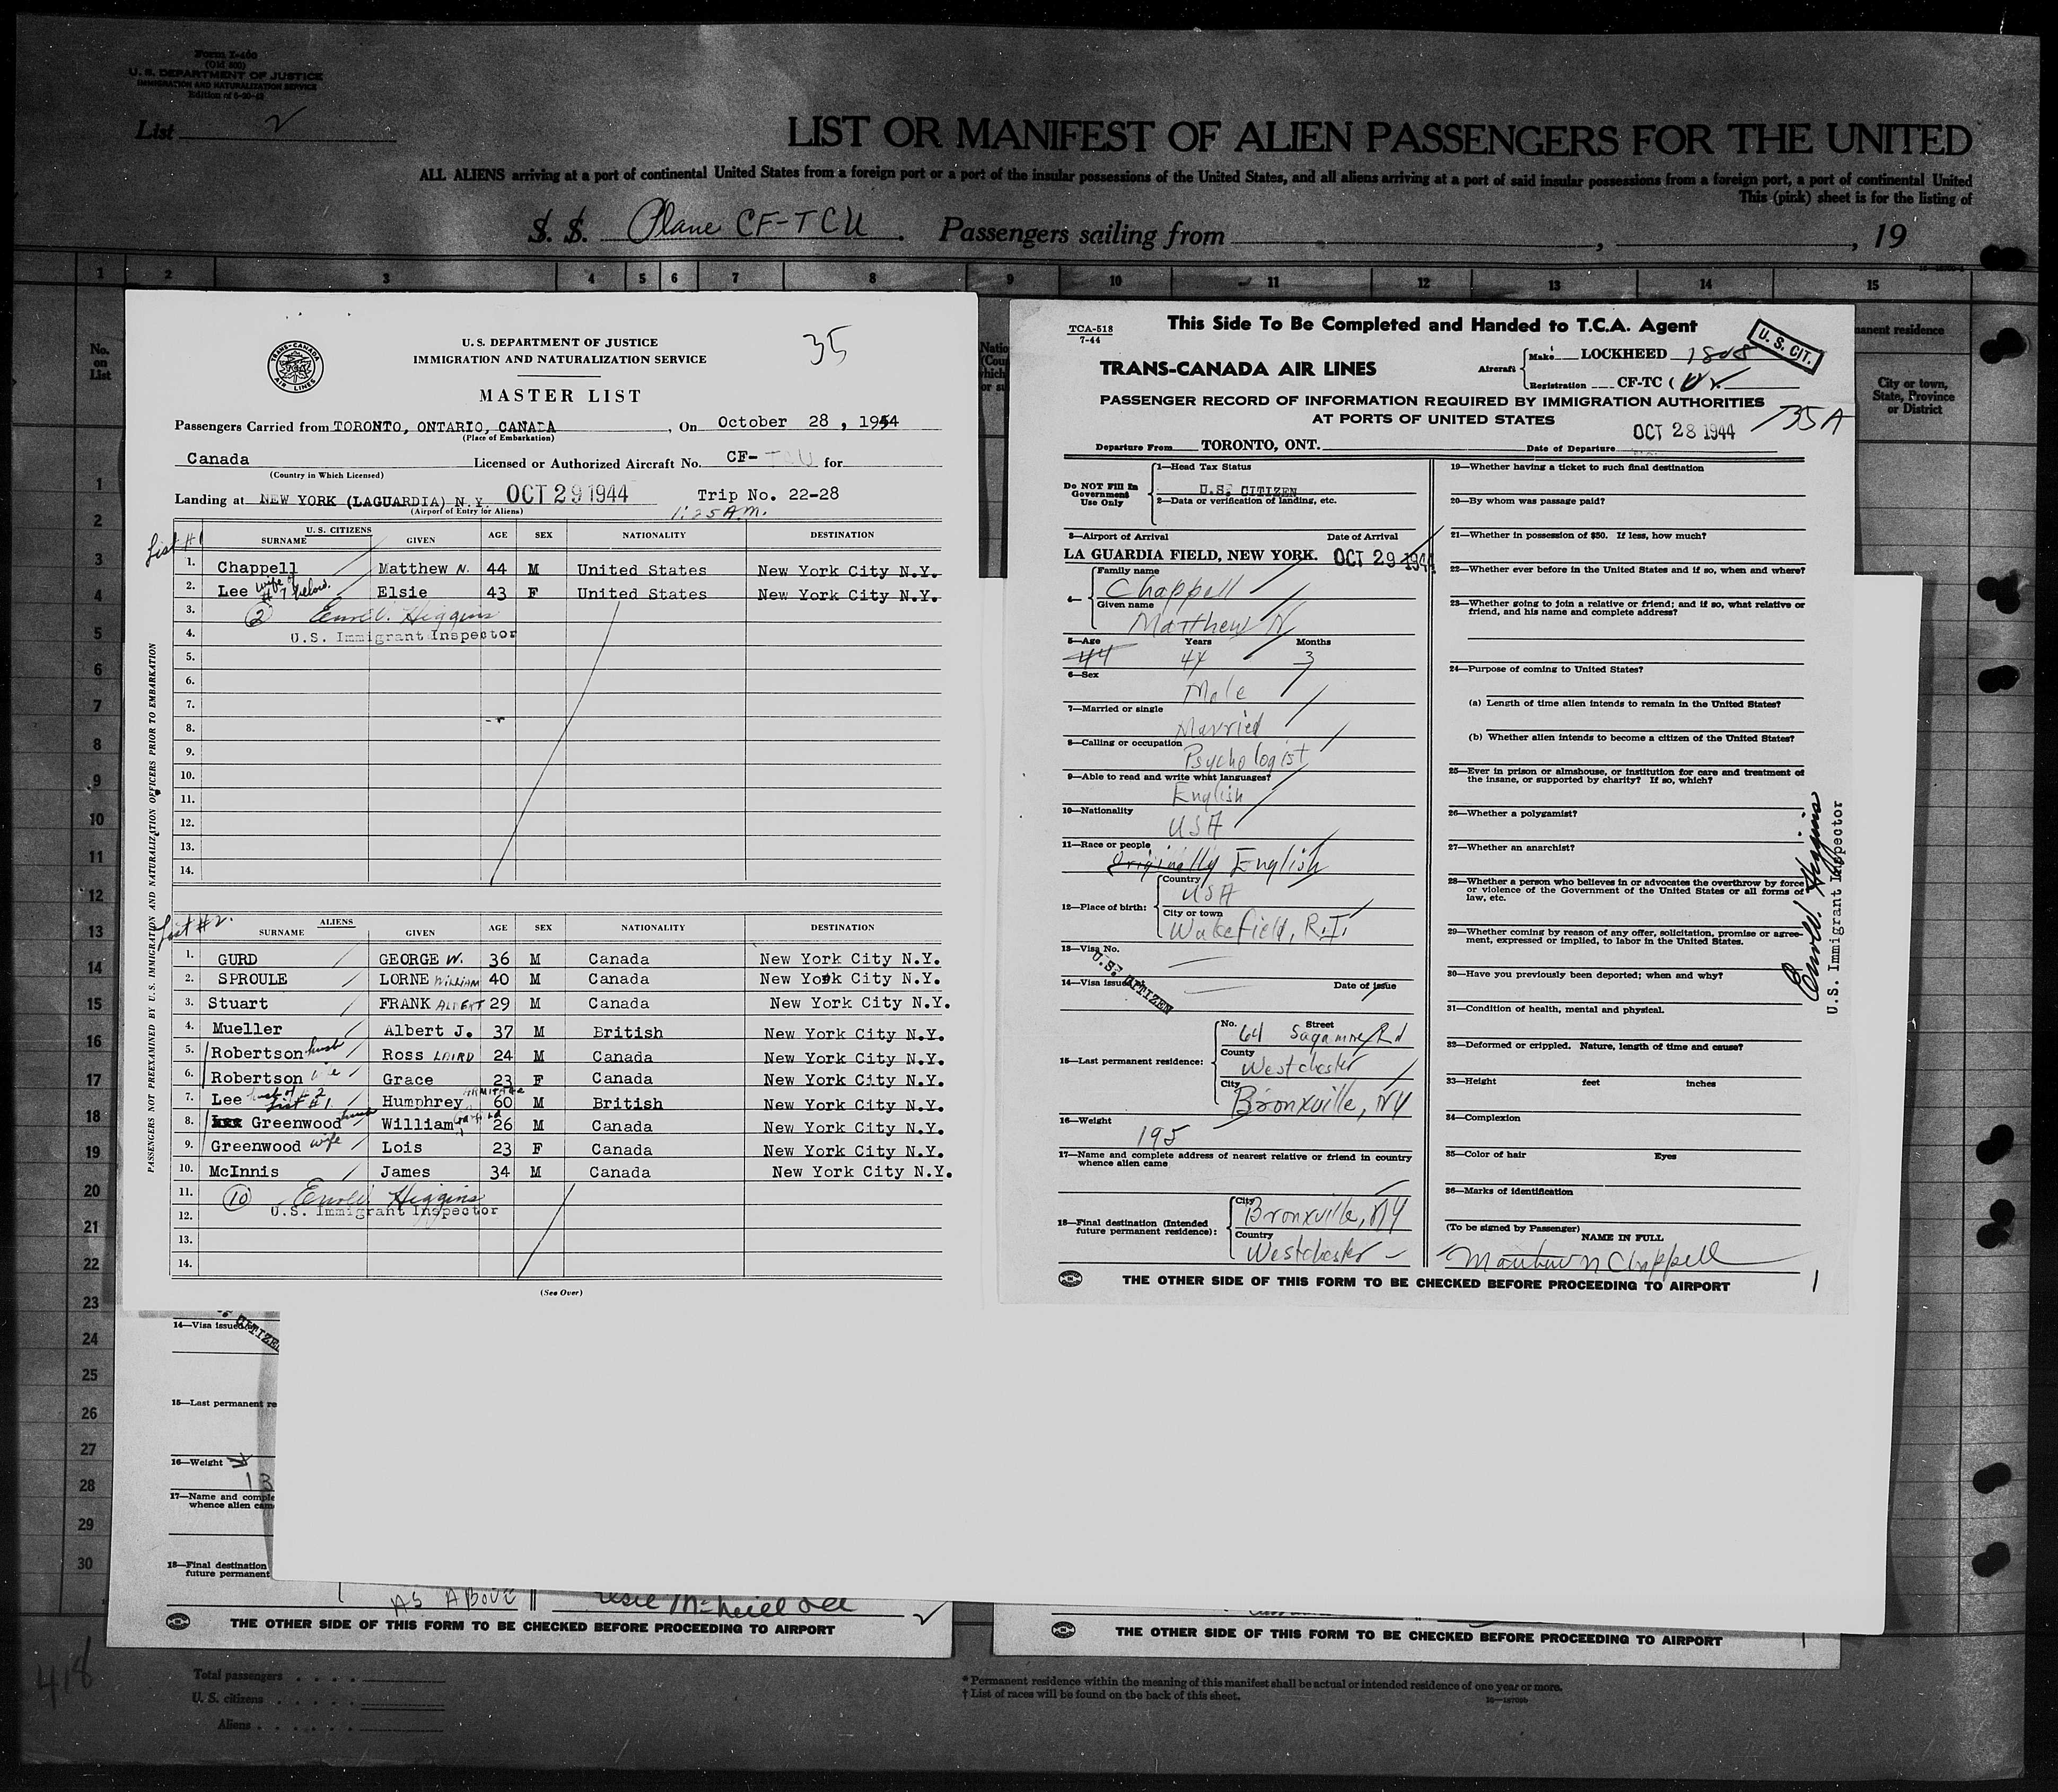 Form I-400
(Old 500)
U. S. DEPARTMENT OF JUSTICE
IMMIGRATION AND NATURALIZATION SERVICE
List 2
LIST OR MANIFEST OF ALIEN PASSENGERS FOR THE UNITED
ALL ALIENS arriving at a port of continental United States from a foreign port or a port of the insular possessions of the United States, and all aliens arriving at a port of said insular possessions from a foreign port, a port of continental United
This (pink) sheet is for the listing of
S. S. Plane CF-TCU. Passengers sailing from , , 19
1 2 3 4 5 6 7 8 9 10 11 12 13 14 15
No. on List
manent residence
City or town, State, Province or District
1
2
3
4
5
6
7
8
9
10
11
12
13
14
15
16
17
18
19
20
21
22
23
24
25
26
27
28
29
30
TRANS-CANADA AIR LINES
U. S. DEPARTMENT OF JUSTICE
IMMIGRATION AND NATURALIZATION SERVICE
35
MASTER LIST
Passengers Carried from TORONTO, ONTARIO, CANADA, On October 28, 1944
(Place of Embarkation)
Canada Licensed or Authorized Aircraft No. CF-TCU for
(Country in Which Licensed)
Landing at NEW YORK (LAGUARDIA) N.Y. OCT 29 1944 Trip No. 22-28
(Airport of Entry for Aliens) 1:25 A.M.
List #1
U. S. CITIZENS
SURNAME GIVEN AGE SEX NATIONALITY DESTINATION
1. Chappell Matthew N. 44 M United States New York City N.Y.
2. Lee wife of #7 below. Elsie 43 F United States New York City N.Y.
3. (2) Higgins
4. U.S. Immigrant Inspector
5.
6.
7.
8.
9.
10.
11.
12.
13.
14.
List #2.
ALIENS
SURNAME GIVEN AGE SEX NATIONALITY DESTINATION
1. GURD GEORGE W. 36 M Canada New York City N.Y.
2. SPROULE LORNE WILLIAM 40 M Canada New York City N.Y.
3. Stuart FRANK ALBERT 29 M Canada New York City N.Y.
4. Mueller Albert J. 37 M British New York City N.Y.
5. Robertson husb Ross LAIRD 24 M Canada New York City N.Y.
6. Robertson wife Grace 23 F Canada New York City N.Y.
7. Lee husb of #2 List #1 Humphrey 60 M British New York City N.Y.
8. Lee Greenwood husb William 26 M Canada New York City N.Y.
9. Greenwood wife Lois 23 F Canada New York City N.Y.
10. McInnis James 34 M Canada New York City N.Y.
11. (10) Higgins
12. U.S. Immigrant Inspector
13.
14.
(See Over)
PASSENGERS NOT PREEXAMINED BY U. S. IMMIGRATION AND NATURALIZATION OFFICERS PRIOR TO EMBARKATION
TCA-518
7-44
This Side To Be Completed and Handed to T.C.A. Agent
U. S. CIT.
TRANS-CANADA AIR LINES
Aircraft Make LOCKHEED 1808
Registration CF-TC (U)
PASSENGER RECORD OF INFORMATION REQUIRED BY IMMIGRATION AUTHORITIES
AT PORTS OF UNITED STATES
735A
Departure From TORONTO, ONT. Date of Departure OCT 28 1944
Do NOT Fill In Government Use Only
1—Head Tax Status
U.S. CITIZEN
2—Data or verification of landing, etc.
3—Airport of Arrival Date of Arrival
LA GUARDIA FIELD, NEW YORK. OCT 29 1944
4— Family name
Chappell
Given name
Matthew N
5—Age Years Months
44 44 3
6—Sex
Male
7—Married or single
Married
8—Calling or occupation
Psychologist
9—Able to read and write what languages?
English
10—Nationality
USA
11—Race or people
Originally English
12—Place of birth: Country
USA
City or town
Wakefield, R.I.
13—Visa No.
U.S. CITIZEN
14—Visa issued Date of issue
15—Last permanent residence: No. Street
64 Sagamore Rd
County
Westchester
City
Bronxville, NY
16—Weight
195
17—Name and complete address of nearest relative or friend in country whence alien came
18—Final destination (Intended future permanent residence): City
Bronxville, NY
Country
Westchester
19—Whether having a ticket to such final destination
20—By whom was passage paid?
21—Whether in possession of $50. If less, how much?
22—Whether ever before in the United States and if so, when and where?
23—Whether going to join a relative or friend; and if so, what relative or friend, and his name and complete address?
24—Purpose of coming to United States?
(a) Length of time alien intends to remain in the United States?
(b) Whether alien intends to become a citizen of the United States?
25—Ever in prison or almshouse, or institution for care and treatment of the insane, or supported by charity? If so, which?
26—Whether a polygamist?
27—Whether an anarchist?
28—Whether a person who believes in or advocates the overthrow by force or violence of the Government of the United States or all forms of law, etc.
29—Whether coming by reason of any offer, solicitation, promise or agreement, expressed or implied, to labor in the United States.
30—Have you previously been deported; when and why?
31—Condition of health, mental and physical.
32—Deformed or crippled. Nature, length of time and cause?
33—Height feet inches
34—Complexion
35—Color of hair Eyes
36—Marks of identification
(To be signed by Passenger)
NAME IN FULL
Matthew N Chappell
Higgins
U.S. Immigrant Inspector
THE OTHER SIDE OF THIS FORM TO BE CHECKED BEFORE PROCEEDING TO AIRPORT
1
14—Visa issued
15—Last permanent re
16—Weight
13
17—Name and comple
whence alien came
18—Final destination
future permanent
AS ABOVE
THE OTHER SIDE OF THIS FORM TO BE CHECKED BEFORE PROCEEDING TO AIRPORT
THE OTHER SIDE OF THIS FORM TO BE CHECKED BEFORE PROCEEDING TO AIRPORT
418
Total passengers
U. S. citizens
Aliens
* Permanent residence within the meaning of this manifest shall be actual or intended residence of one year or more.
† List of races will be found on the back of this sheet.